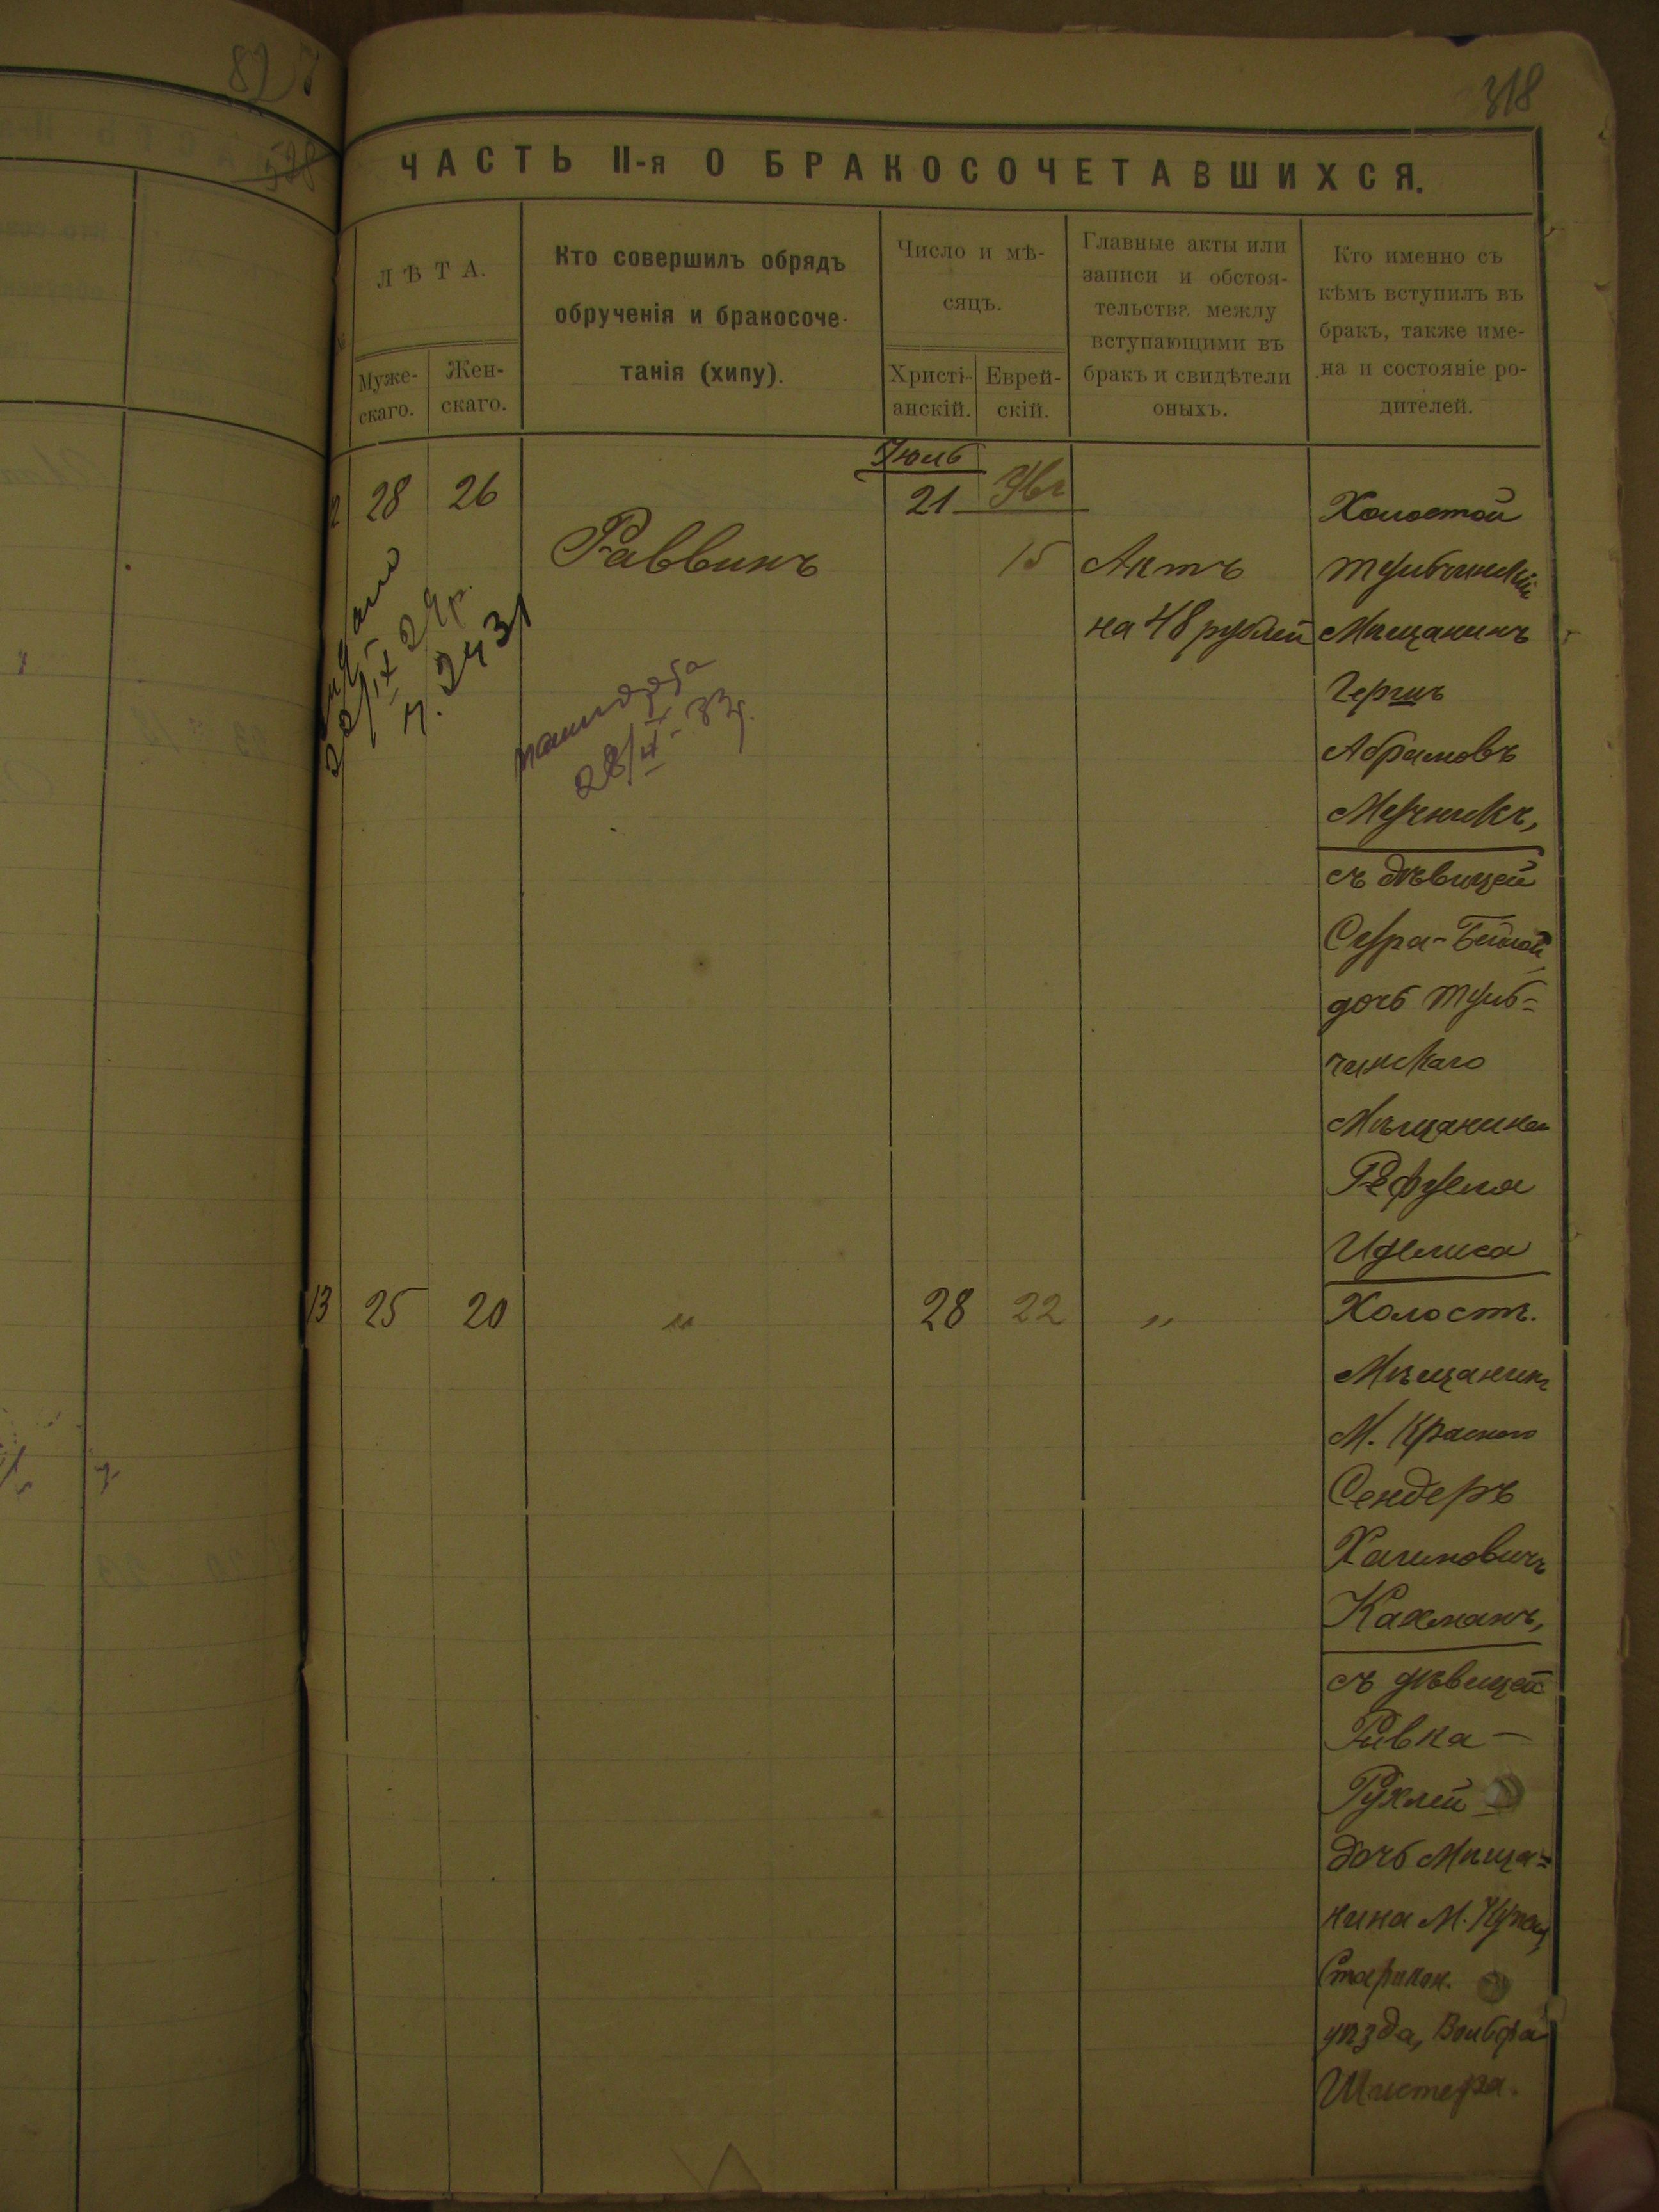 318
ЧАСТЬ II-я О БРАКОСОЧЕТАВШИХСЯ.
ЛѢТА.
Муже-
скаго.
Жен-
скаго.
Кто совершилъ обрядъ
обрученія и бракосоче-
танія (хипу).
Число и мѣ-
сяцъ.
Христі-
анскій.
Еврей-
скій.
Главные акты или
записи и обстоя-
тельства между
вступающими въ
бракъ и свидѣтели
оныхъ.
Кто именно съ
кѣмъ вступилъ въ
бракъ, также име-
на и состояніе ро-
дителей.
28
26
Раввинъ
Іюль
21
15
Актъ
на 48 рублей
22/IX 29г.
28/II - 33г.
Холостой
тульчинскій
Мѣщанинъ
Гершъ
Абрамовъ
Мучникъ,
съ дѣвицей
Сура-Бейлой
дочь туль-
чинскаго
Мѣщанина
Рефуела
13
25
20
"
28
22
"
Холост.
Мѣщанинъ
М. Красного
Сендеръ
Хаимовичъ
съ дѣвицей
Ривка-
Рухлей
дочь Мѣща-
нина М.
Старокон.
уѣзда, Вольфа